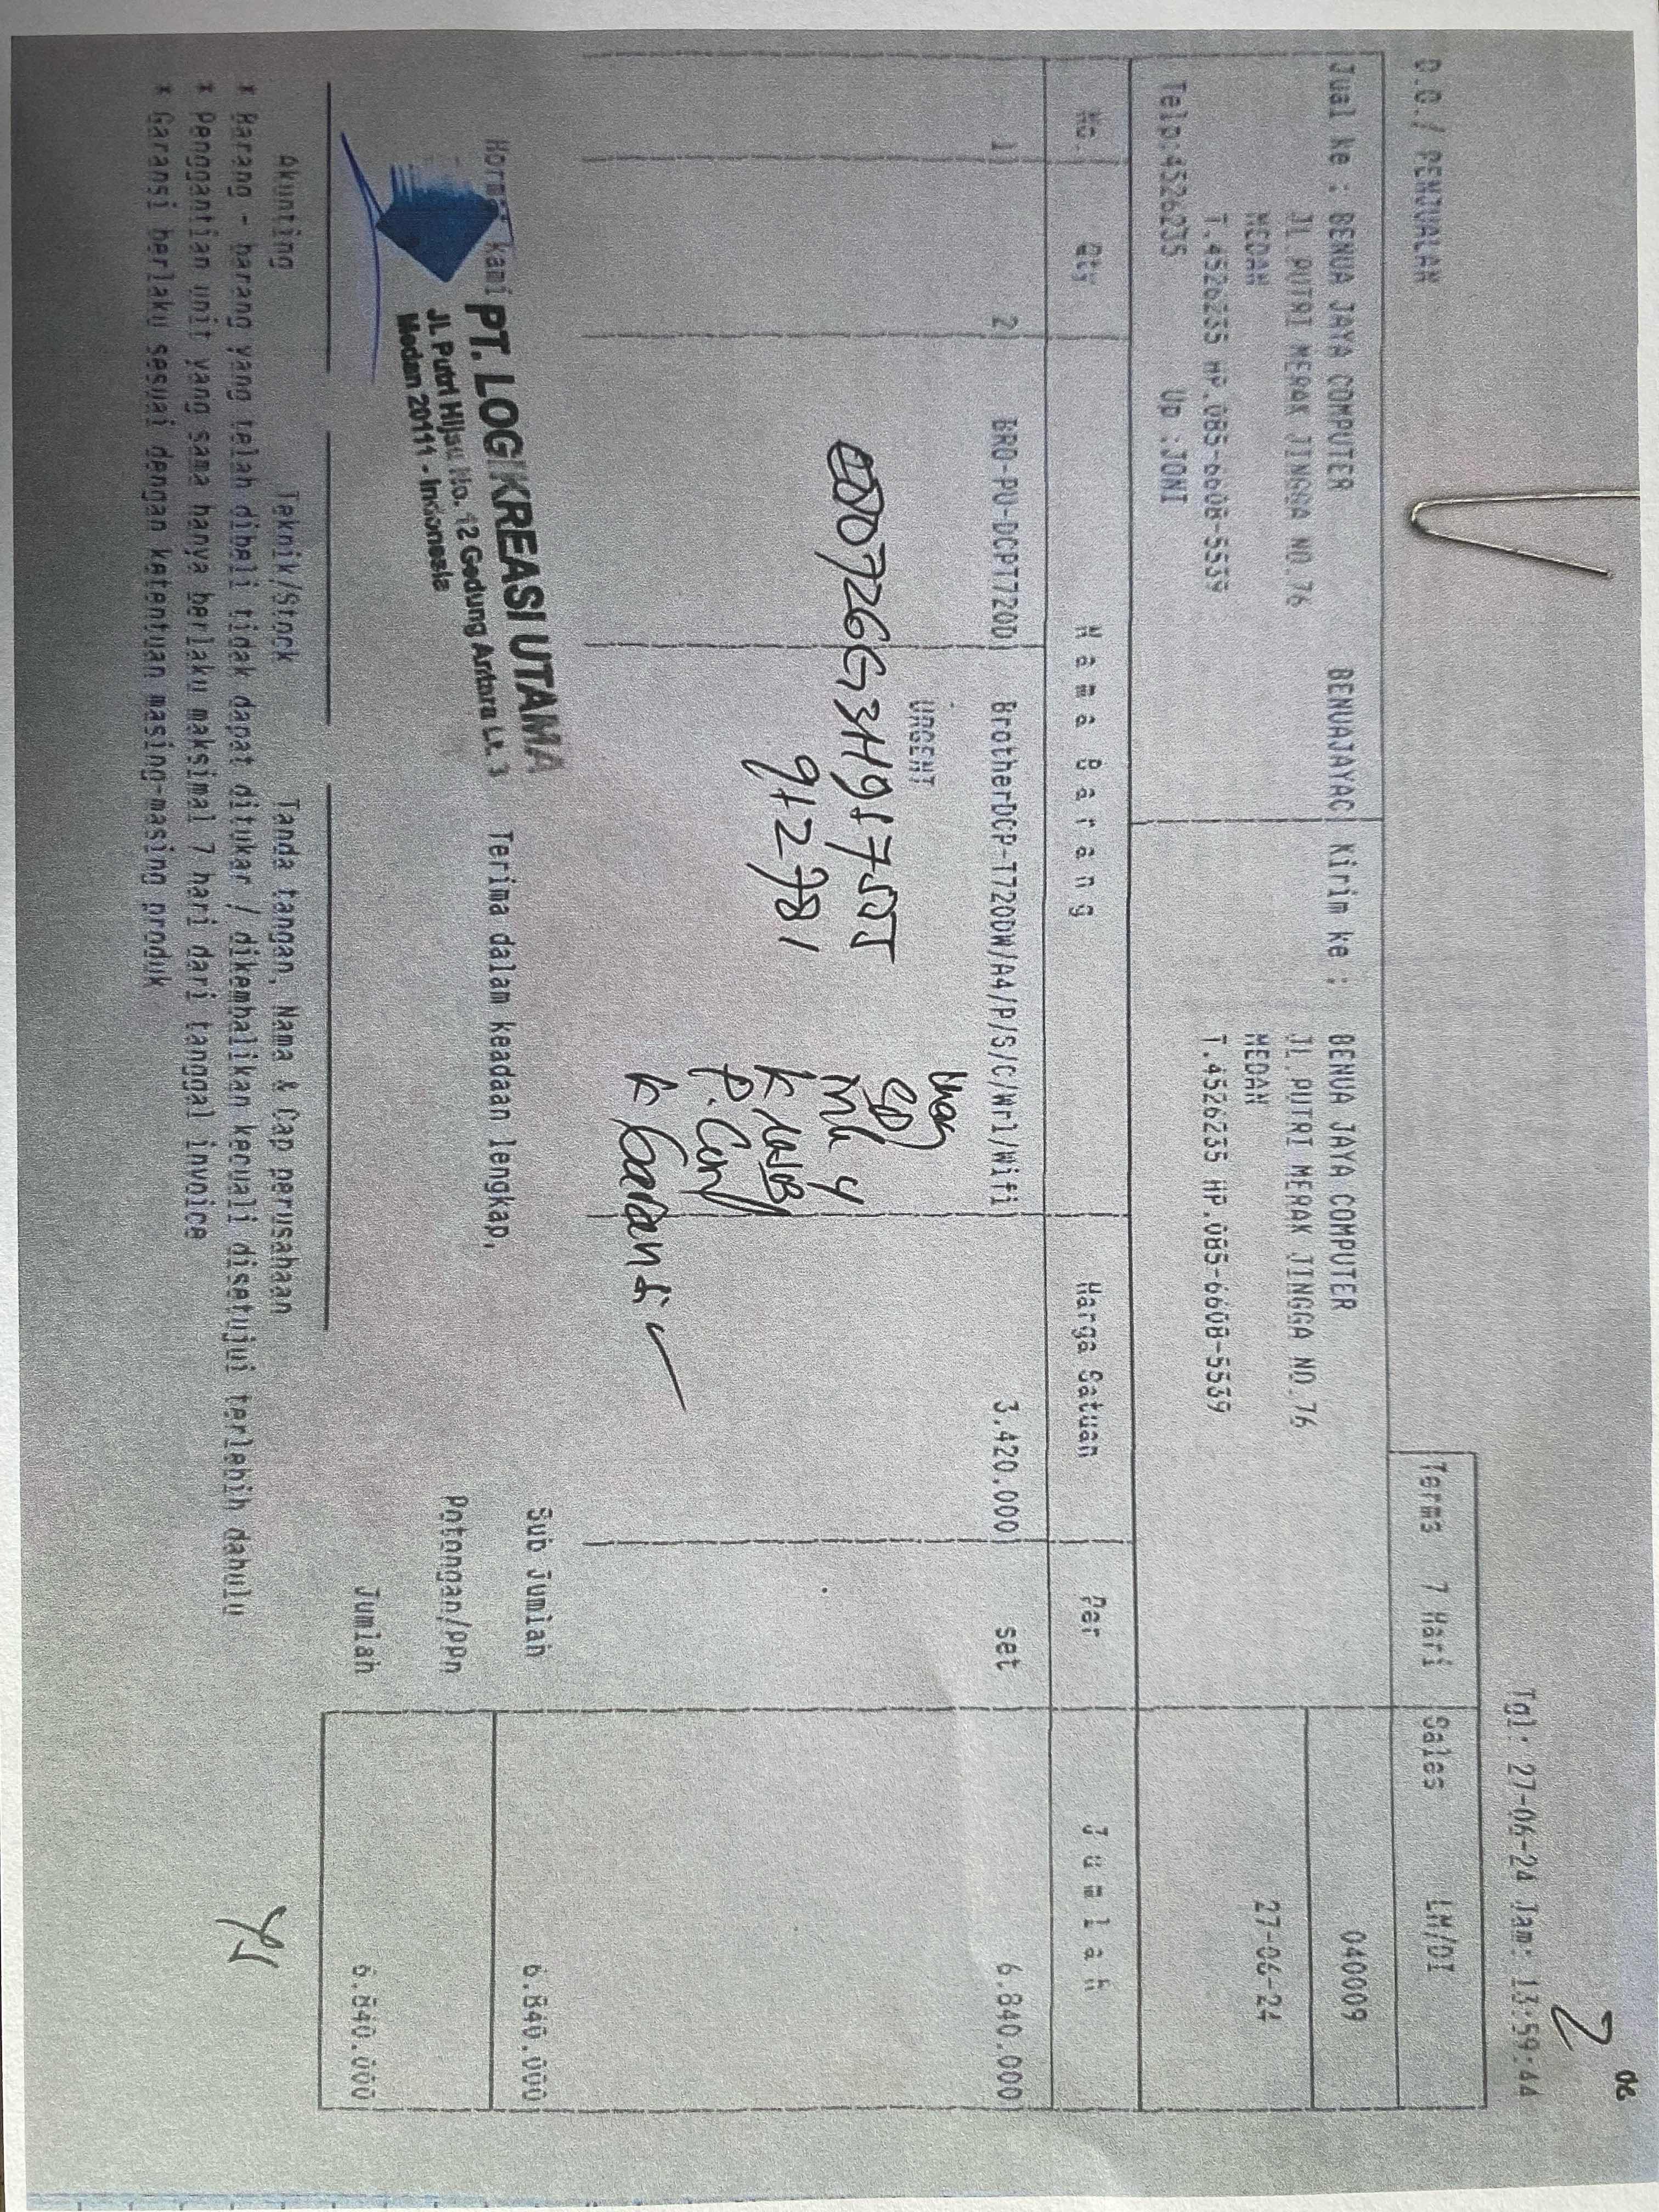 06
2
Tgl: 27-06-24 Jam: 13:59:44
D.O./ PENJUALAN
Terms 7 Hari Sales LM/DI
Jual ke : BENUA JAYA COMPUTER BENUAJAYAC Kirim ke : BENUA JAYA COMPUTER 040009
JL.PUTRI MERAK JINGGA NO.76 JL.PUTRI MERAK JINGGA NO.76
MEDAN MEDAN 27-06-24
T.4526235 HP.085-6608-5539 T.4526235 HP.085-6608-5539
Telp:4526235 Up :JONI
No. Qty Nama Barang Harga Satuan Per Jumlah
1 2 BRO-PU-DCPT720D BrotherDCP-T720DW/A4/P/S/C/Wrl/Wifi 3.420.000 set 6.840.000
URGENT
912781
K Garansi
PT. LOGIKREASI UTAMA
JL. Putri Hijau No. 12 Gedung Antara Lt. 3
Medan 20111 - Indonesia
Hormat kami Terima dalam keadaan lengkap,
Sub Jumlah 6.840.000
Potongan/PPn
Jumlah 6.840.000
Akunting Teknik/Stock Tanda tangan, Nama & Cap perusahaan
* Barang - barang yang telah dibeli tidak dapat ditukar / dikembalikan kecuali disetujui terlebih dahulu
* Penggantian unit yang sama hanya berlaku maksimal 7 hari dari tanggal invoice
* Garansi berlaku sesuai dengan ketentuan masing-masing produk